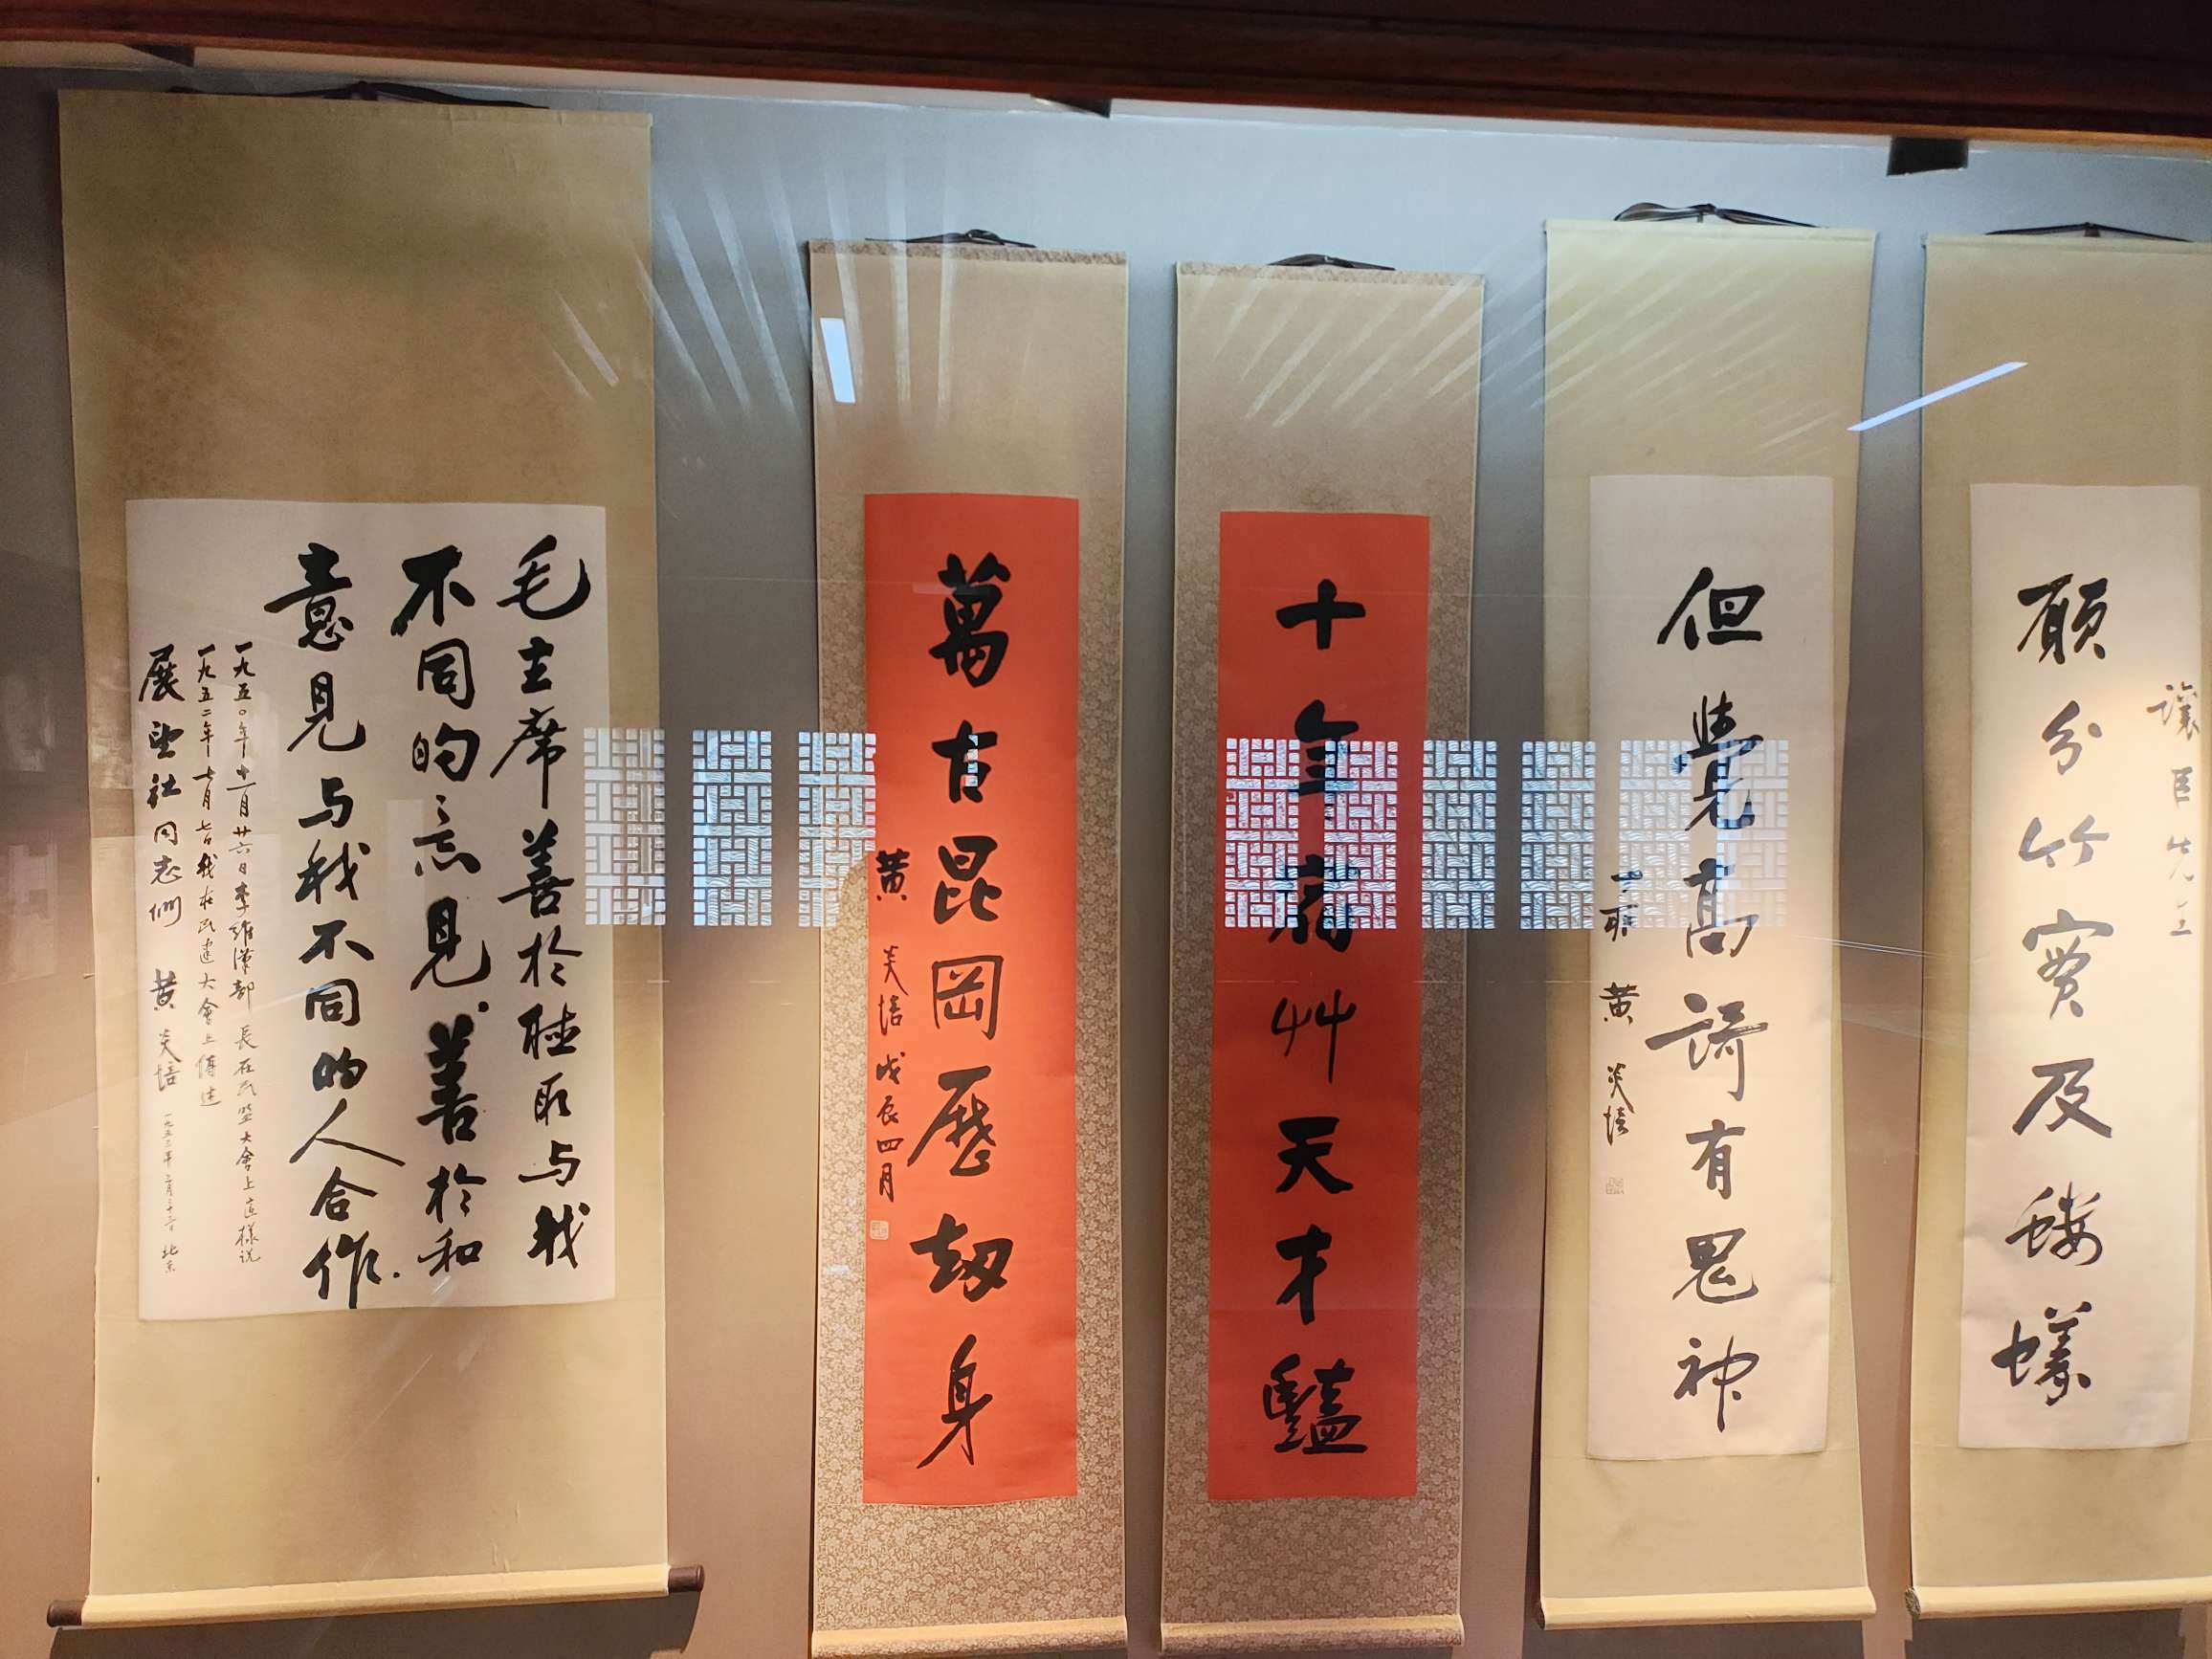 讓臣先生
願分竹實及螻蟻
但覺高謌有鬼神
黃炎培
十年病艸天才豔
萬古昆岡歷劫身
黃炎培 戊辰四月
毛主席善於聽取与我
不同的意見．善於和
意見与我不同的人合作．
一九五〇年十一月廿六日李維漢部長在民坚大會上這樣说
一九五二年七月七日我在民建大會上傳达
展望社同志們 黃炎培 北京